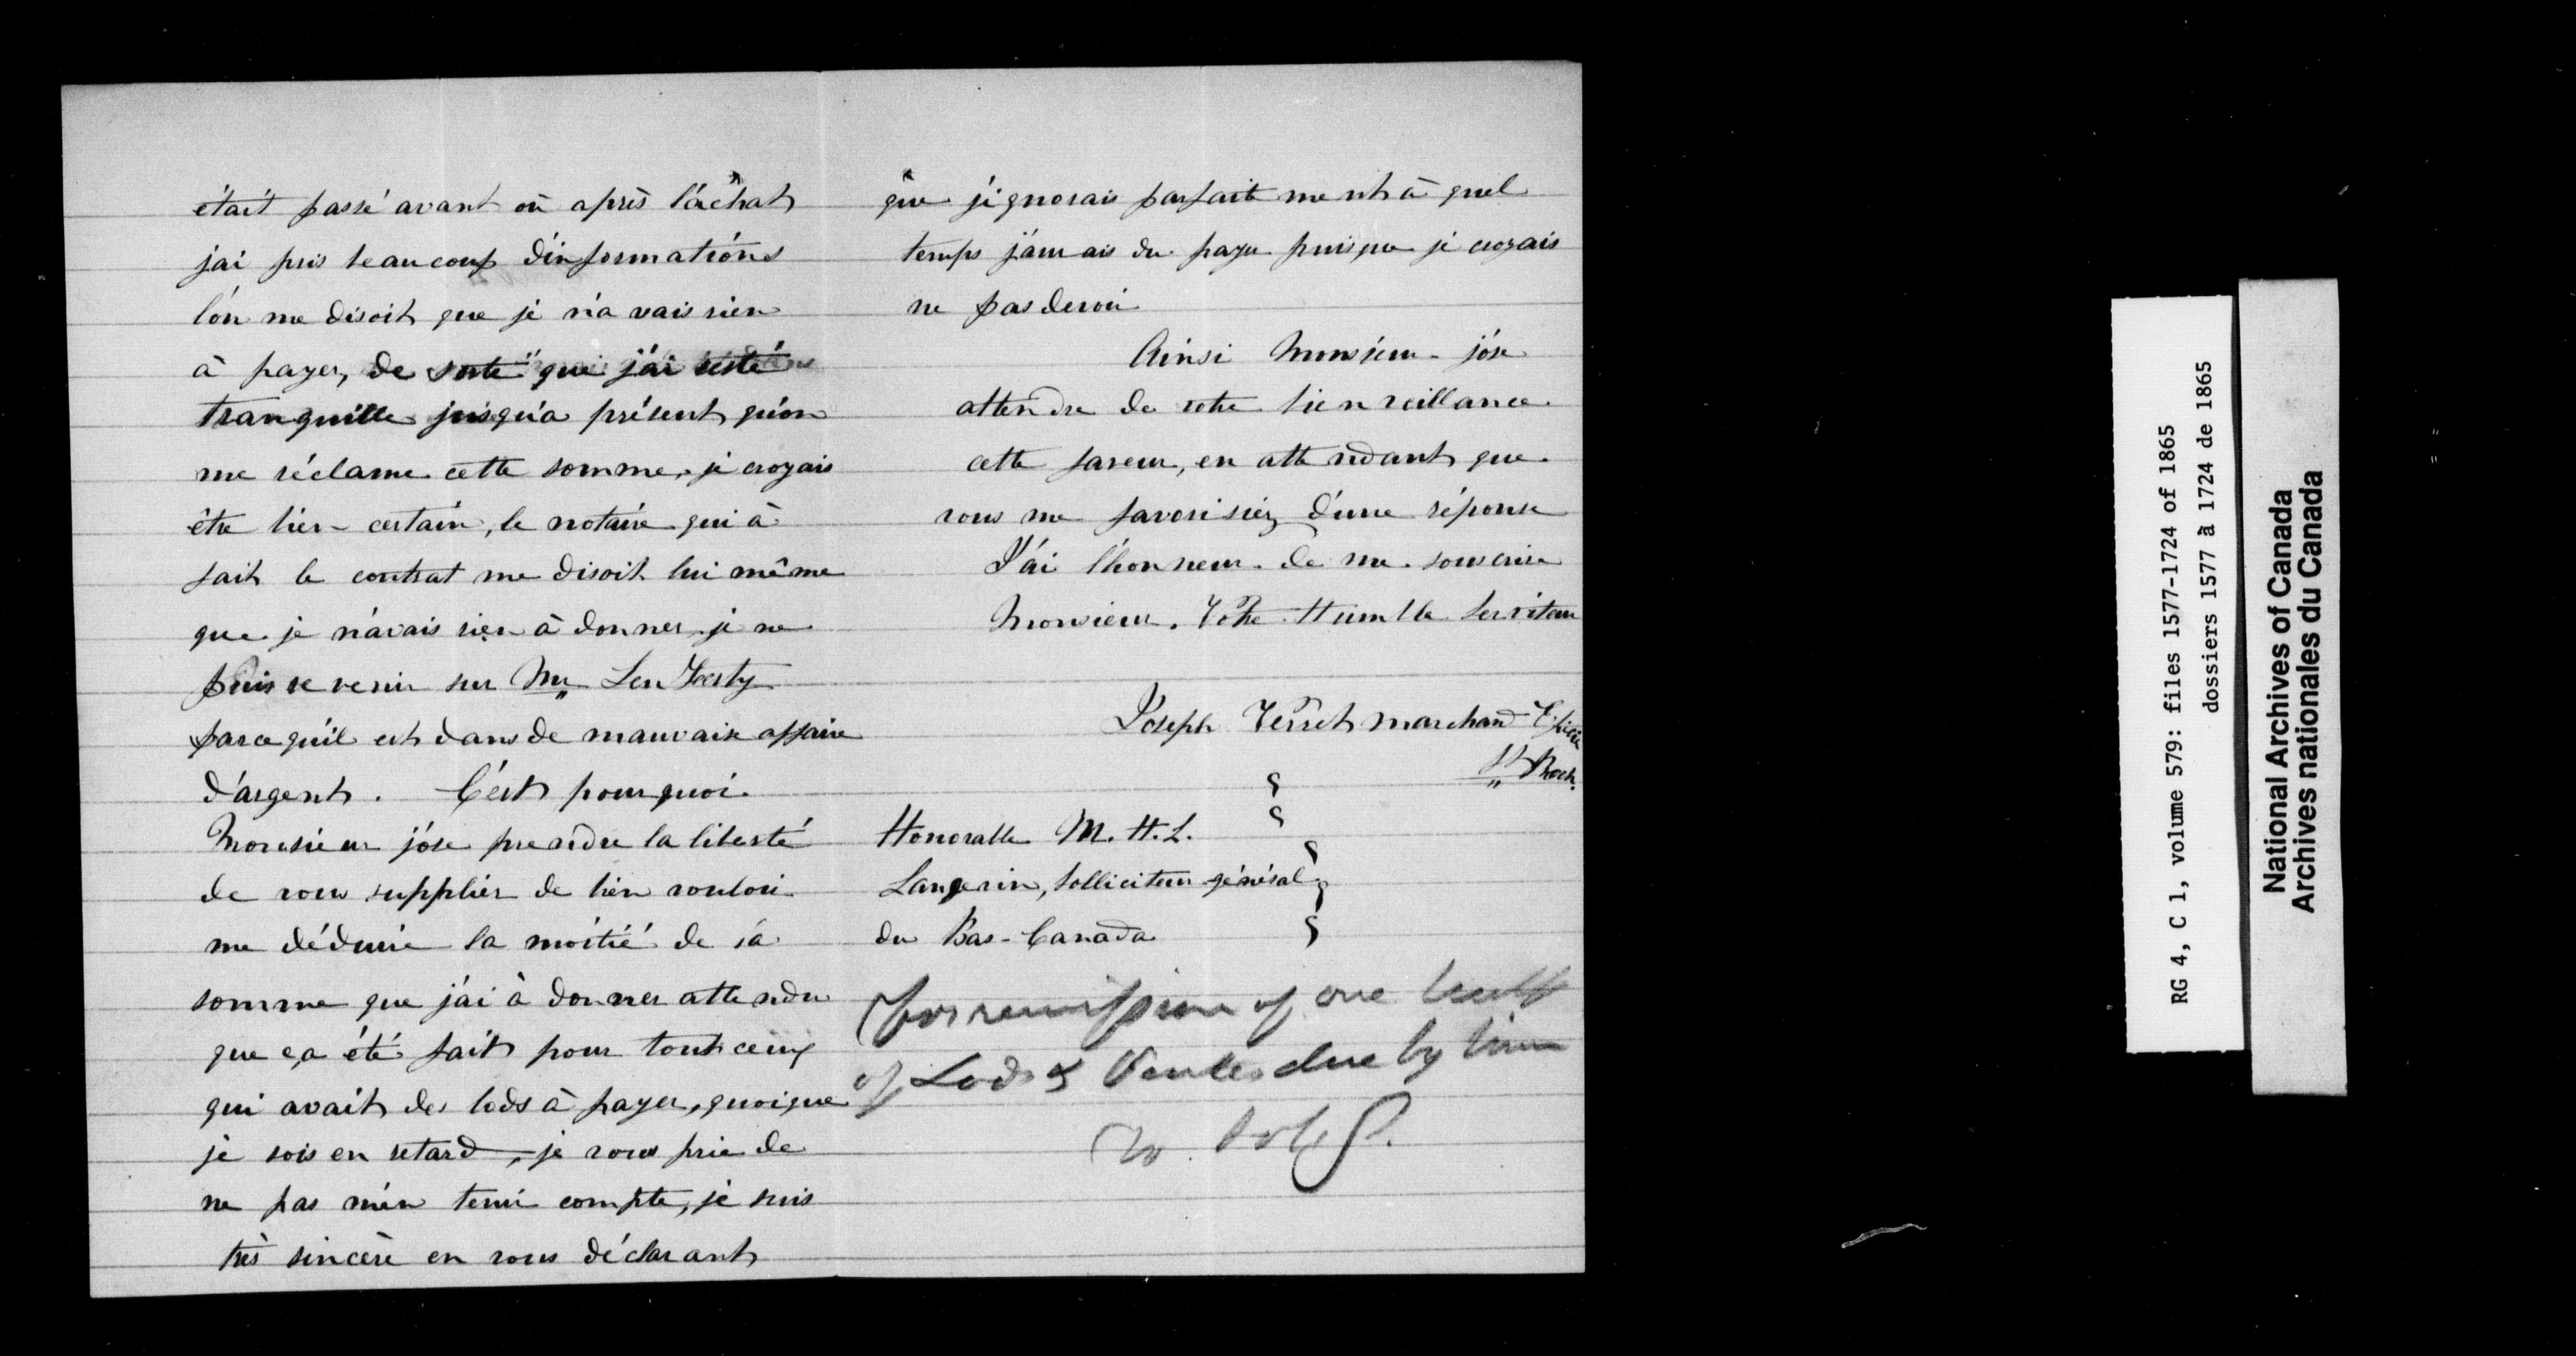 était passé avant où après l'áchat
j'ai pris beaucoup d'informations
l'ón me disoit que je n'avais rien
à payer, de sorte que j'ai resté
tranquille jusqu'a présent qu'on
me réclame cette somme, je croyais
être bien certain, le notaire qui à
fait le contrat me disoit lui même
que je n'avais rien à donner, je ne
puis revenir sur Mr
parcequ'il est dans de mauvaise affaire
d'argent. C'est pourquoi
Monsieur j'óse prendre la liberté
de vous supplier de bien vouloir
me déduire la moitié de la
somme que j'ai à donner attendu
que ça été fait pour tout ceux
qui avait des lods à payer, quoique
je sois en retard, je vous prie de
ne pas m'én tenir compte, je suis
très sincère en vous déclarant
que j'ignorais parfaitement à quel
temps j'aurais du payer puisque je croyais
ne pas devoir
Ainsi Monsieur j'óse
attendre de votre bienveillance
cette faveur, en attendant que
vous me favorisiez d'une réponse
J'ái l'honneur de me souscrire
Monsieur, Votre Humble Serviteur
Joseph Verret marchand Epicier
St Roch.
Honorable M. H. L.
Langevin, Solliciteur général
du Bas-Canada
for remission of one half
of Lods & Ventes due by him
RG 4, C 1, volume 579: files 1577-1724 of 1865
dossiers 1577 à 1724 de 1865
National Archives of Canada
Archives nationales du Canada